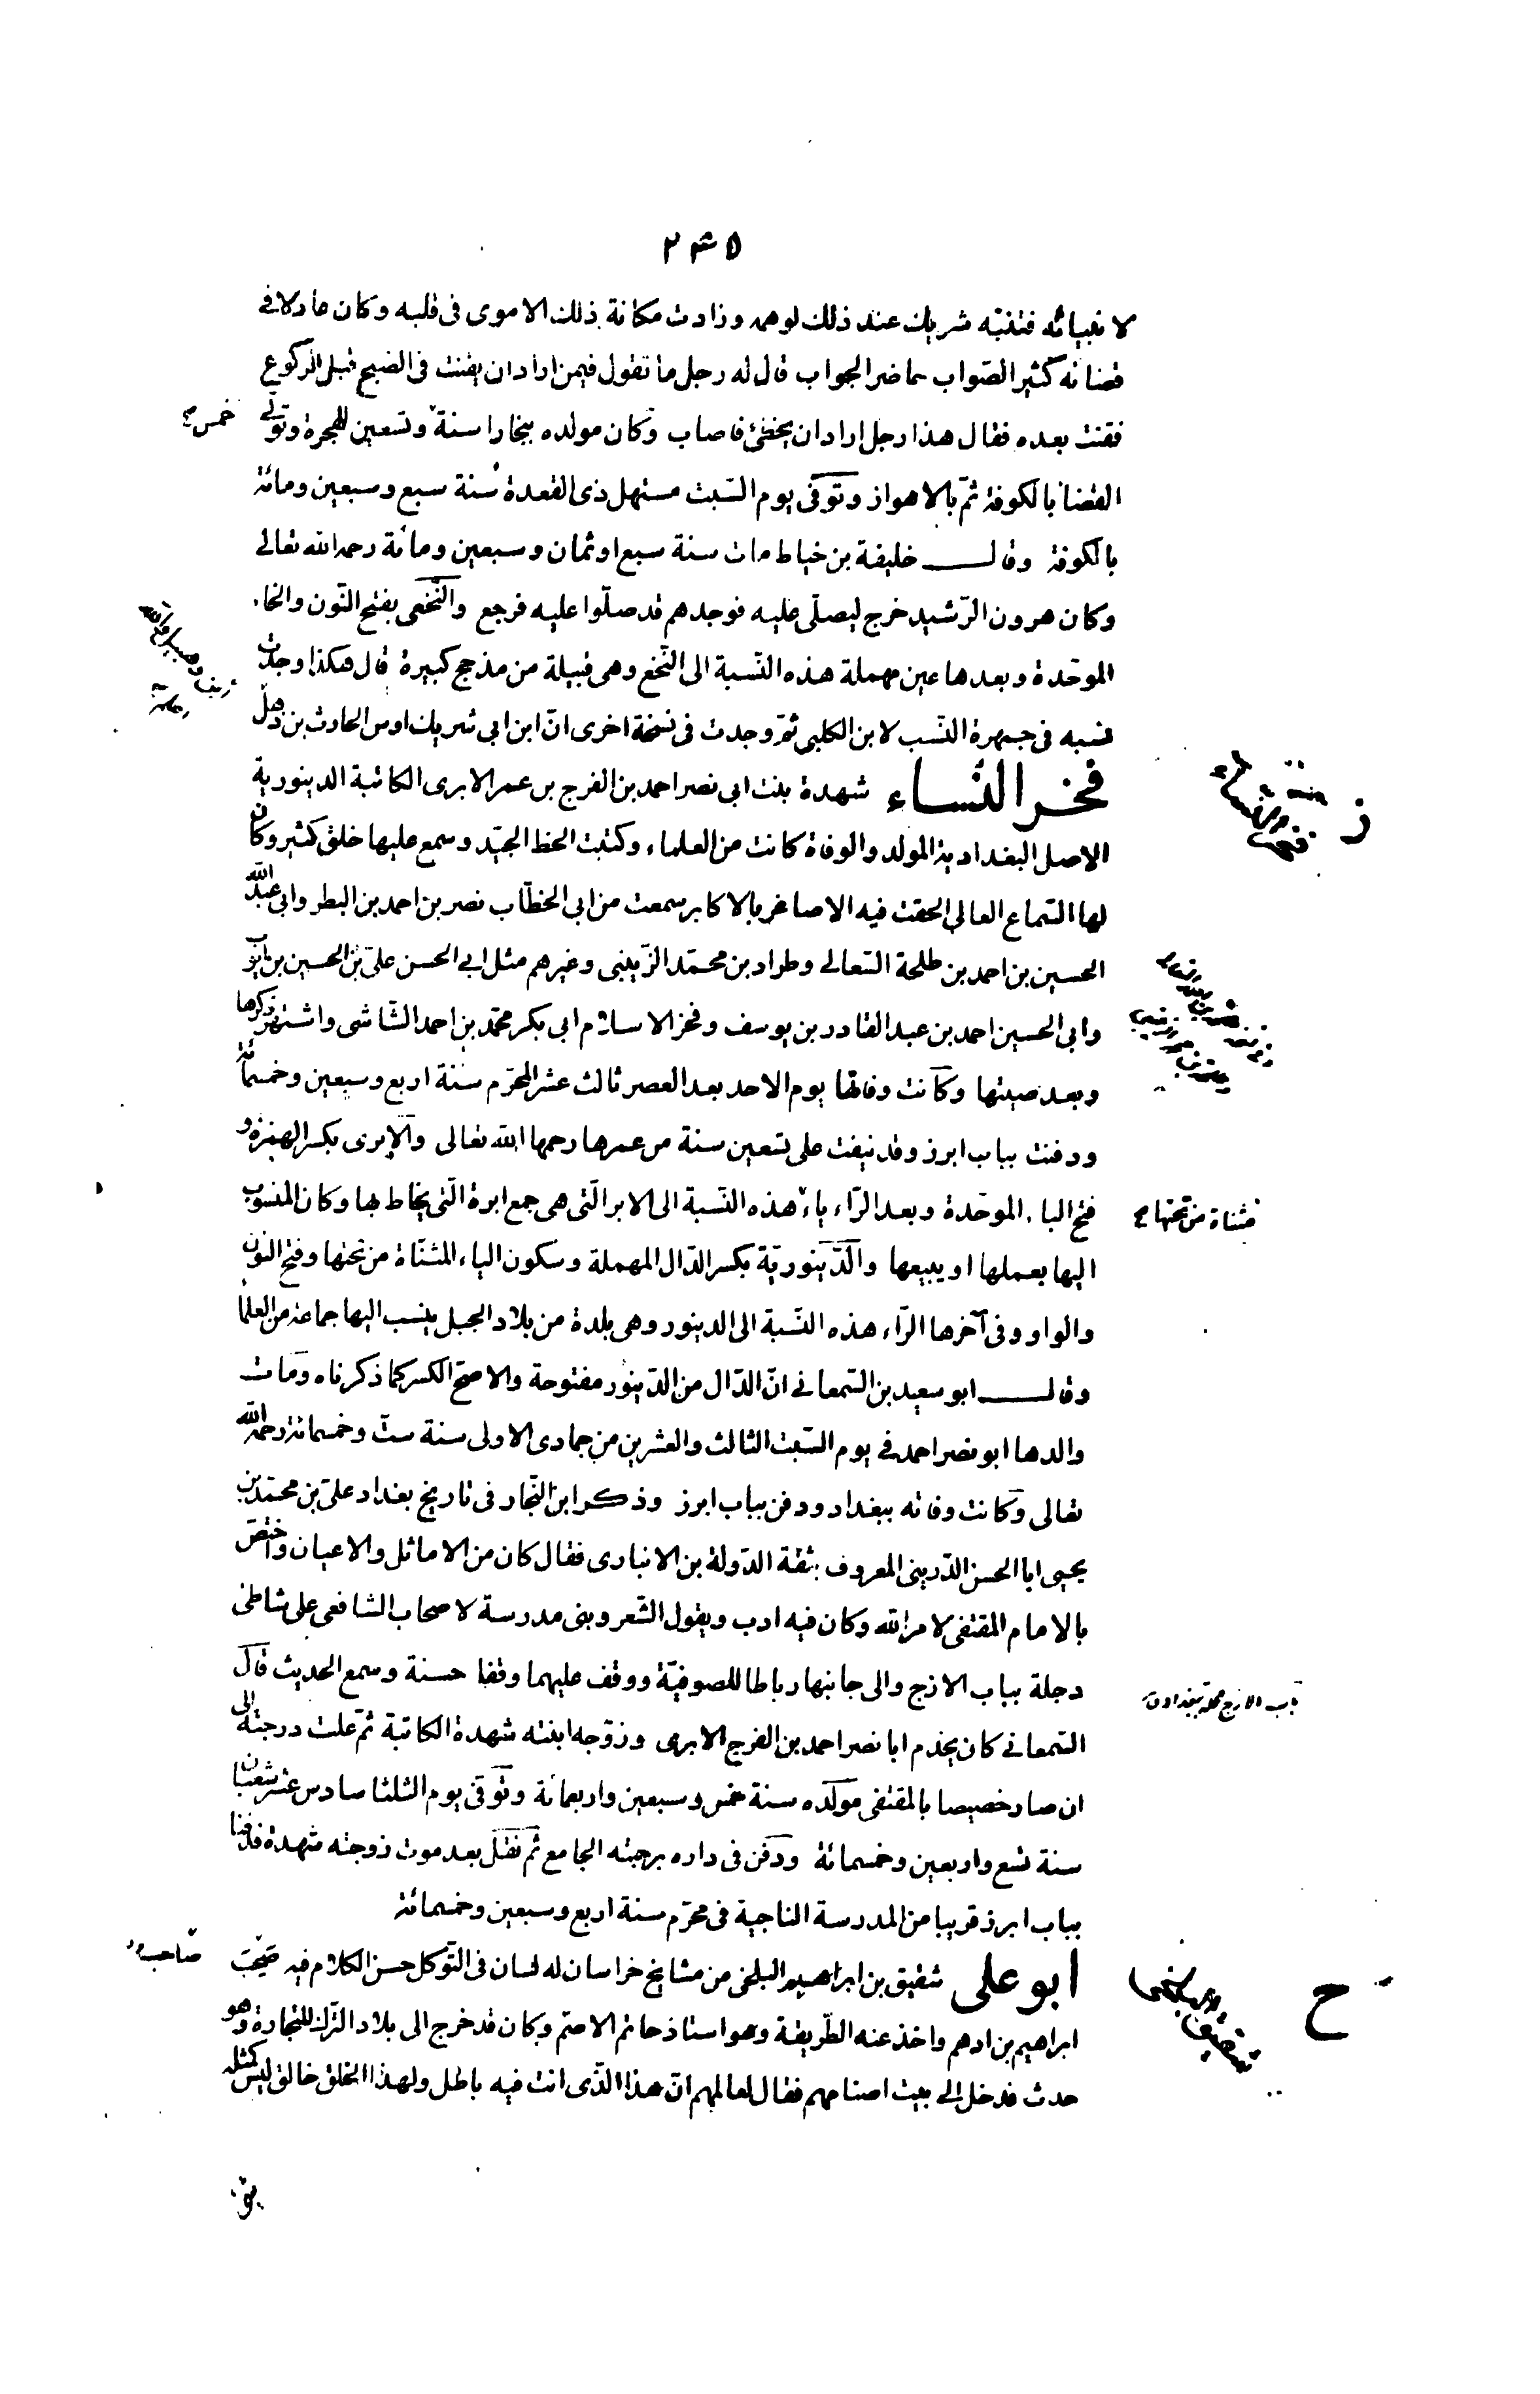 ٢٣٥
لا نبيائه فتنبّه شريك عند ذلك لوهمه وزادت مكانة ذلك الاموى فى قلبه وكان عادلا فى
قضائه كثير الصّواب حاضر الجواب قال له رجل ما تقول فيمن اراد ان يقنت فى الصّبح قبل الرّكوع
فقنت بعده فقال هذا رجل اراد ان يخطئ فاصاب وكان مولده ببخارا سنة وتسعين للهجرة وتولّى
خمس صح
القضا بالكوفة ثمّ بالاهواز وتوفّى يوم السّبت مستهل ذى القعدة سنة سبع وسبعين ومائة
بالكوفة وقال خليفة بن خياط مات سنة سبع او ثمان وسبعين ومائة رحمه الله تعالى
وكان هرون الرّشيد خرج ليصلّى عليه فوجدهم قد صلّوا عليه فرجع والنّخعى بفتح النّون والخاء
الموحّدة وبعدها عين مهملة هذه النّسبة الى النّخع وهى قبيلة من مذحج كبيرة قال هكذا وجدت
نسبه فى جمهرة النّسب لابن الكلبى ثمّ وجدت فى نسخة اخرى انّ ابن ابى شريك اوس الحارث بن ذهل
فخر النّساء شهدة بنت ابى نصر احمد بن الفرج بن عمر الابرى الكاتبة الدينورية
ز
فخر النساء
الاصل البغدادية المولد والوفاة كانت من العلماء وكتبت الخط الجيّد وسمع عليها خلق كثير وكان
لها السّماع العالى الحقت فيه الاصاغر بالاكابر سمعت من ابى الخطّاب نصر بن احمد بن البطر وابى عبد الله
الحسين بن احمد بن طلحة النّعالى وطراد بن محمّد الزّينبى وغيرهم مثل ابى الحسن علىّ بن الحسين بن ايّوب
وابى الحسين احمد بن عبد القادر بن يوسف وفخر الاسلام ابى بكر محمّد بن احمد الشّاشى واشتهر ذكرها
وبعد صيتها وكانت وفاتها يوم الاحد بعد العصر ثالث عشر المحرّم سنة اربع وسبعين وخمسمائة
ودفنت بباب ابرز وقد نيفت على تسعين سنة من عمرها رحمها الله تعالى والإبرى بكسر الهمزة و
فتح الباء الموحّدة وبعد الرّاء ياء هذه النّسبة الى الابر الّتى هى جمع ابرة الّتى يخاط بها وكان المنسوب
مثناة من تحتها صح
اليها يعملها او يبيعها والدّينوريّة بكسر الدّال المهملة وسكون الياء المثنّاة من تحتها وفتح النون
والواو وفى آخرها الرّاء هذه النّسبة الى الدينور وهى بلدة من بلاد الجبل ينسب اليها جماعة من العلما
وقال ابو سعيد بن السّمعانى انّ الدّال من الدّينور مفتوحة والاصحّ الكسر كما ذكرناه ومات
والدها ابو نصر احمد فى يوم السّبت الثالث والعشرين من جمادى الاولى سنة ستّ وخمسمائة رحمه الله
تعالى وكانت وفاته ببغداد ودفن بباب ابرز وذكر ابن النّجار فى تاريخ بغداد علىّ بن محمّد بن
يحيى ابا الحسن الدّرينى المعروف بثقة الدّولة بن الانبارى فقال كان من الاماثل والاعيان واختصّ
بالامام المقتفى لامر الله وكان فيه ادب ويقول الشّعر وبنى مدرسة لاصحاب الشافعى على شاطئ
دجلة بباب الازج والى جانبها رباطا للصوفيّة ووقف عليهما وقفا حسنة وسمع الحديث قال
باب الازج محلة ببغداد
السّمعانى كان يخدم ابا نصر احمد بن الفرج الابرى وزوّجه ابنته شهدة الكاتبة ثمّ علت درجته الى
ان صار خصيصا بالمقتفى مولده سنة خمس وسبعين واربعمائة وتوفّى يوم الثلثا سادس عشر شعبان
سنة تسع واربعين وخمسمائة ودفن فى داره برحبته الجامع ثمّ نقل بعد موت زوجته شهدة فدفنا
بباب ابرز قريبا من المدرسة التاجية فى محرّم سنة اربع وسبعين وخمسمائة
ابو على شقيق بن ابراهيم البلخى من مشايخ خراسان له لسان فى التّوكل حسن الكلام فيه صحب
صاحب
ح
شقيق البلخى
ابراهيم بن ادهم واخذ عنه الطّريقة وهو استاذ حاتم الاصمّ وكان قد خرج الى بلاد الترك للتجارة وهو
حدث فدخل الى بيت اصنامهم فقال لعالمهم انّ هذا الّذى انت فيه باطل ولهذا الخلق خالق ليس كمثله